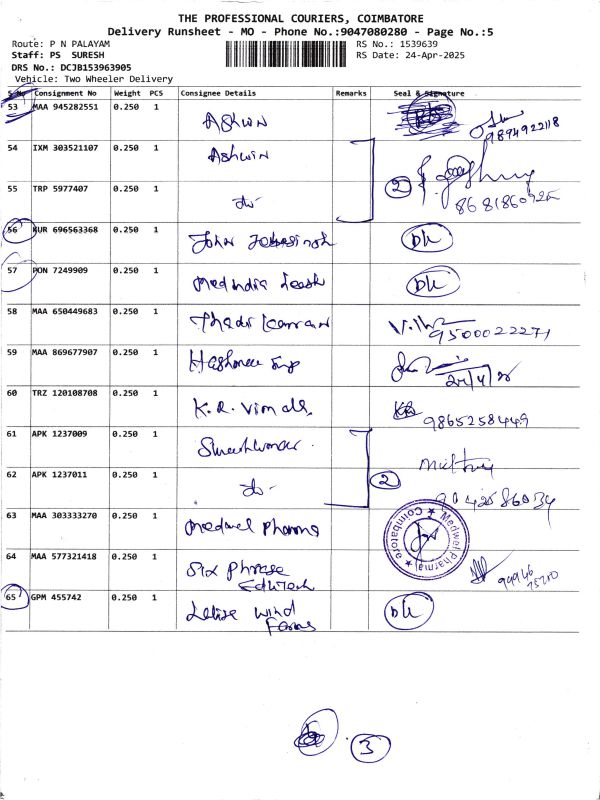 THE PROFESSIONAL COURIERS, COIMBATORE
Delivery Runsheet - MO - Phone No.:9047080280 - Page No.:5
Route: P N PALAYAM RS No.: 1539639
Staff: PS SURESH RS Date: 24-Apr-2025
DRS No.: DCJB153963905
Vehicle: Two Wheeler Delivery
S.No Consignment No Weight PCS Consignee Details Remarks Seal & Signature
53 MAA 945282551 0.250 1 Ashwin 9894922118
54 IXM 303521107 0.250 1 Ashwin
55 TRP 5977407 0.250 1 do- 2 8681860725
56 KUR 696563368 0.250 1 John DL
57 PON 7249909 0.250 1 Medindia DL
58 MAA 650449683 0.250 1 9500022271
59 MAA 869677907 0.250 1 24/4/25
60 TRZ 120108708 0.250 1 K.R. Vimala 9865258449
61 APK 1237009 0.250 1
62 APK 1237011 0.250 1 do- 2 9042586034
63 MAA 303333270 0.250 1 Medwel Pharma Medwel Pharma Coimbatore
64 MAA 577321418 0.250 1 Six Phrase
Edutech 99946
75200
65 GPM 455742 0.250 1 Wind DL
Farms
3